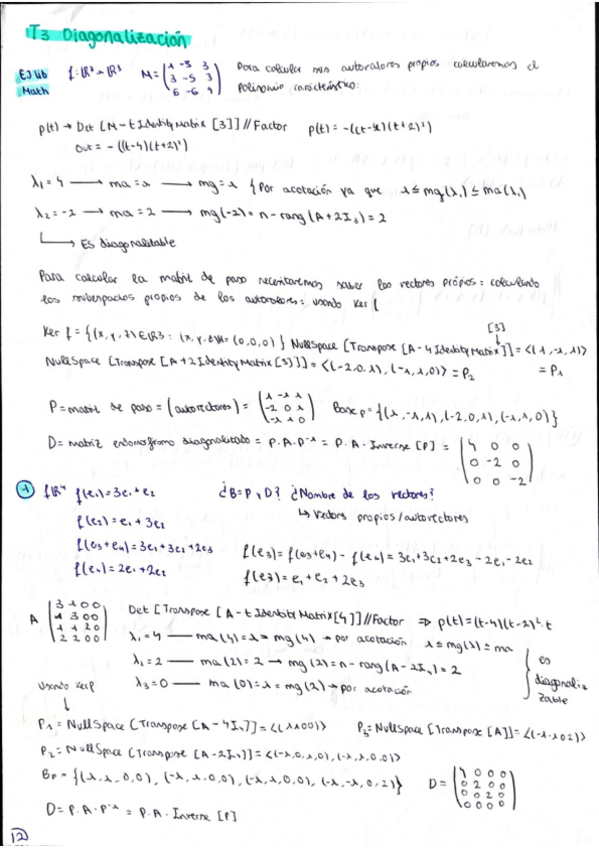 T3 Diagonalización
EJ lib Math
f: ℝ³→ℝ³ M = (1 -3 3
3 -5 3
6 -6 4)
Para calcular sus autovalores propios calcularemos el
polinomio característico:
p(t) → Det [M - t IdentityMatrix [3]] // Factor p(t) = -((t-4)(t+2)²)
Out = - ((t-4)(t+2)²)
λ₁ = 4 → ma = 1 → mg = 1 { Por acotación ya que 1 ≤ mg(λ₁) ≤ ma(λ₁)
λ₂ = -2 → ma = 2 → mg(-2) = n - rang (A + 2I₃) = 2
↳ Es diagonalizable
Para calcular la matriz de paso necesitaremos saber los vectores propios: calculando
los subespacios propios de los autovalores: usando Ker f
Ker f = {(x, y, z) ∈ ℝ3 : (x, y, z)M = (0,0,0)} NullSpace [Transpose [A - 4 IdentityMatrix [3]]] = <(1, -1, 1)> = P₁
NullSpace [Transpose [A + 2 IdentityMatrix [3]]] = <(-2,0,1), (-1,1,0)> = P₂
P = matriz de paso = (autovectores) = (1 -1 1
-2 0 1
-1 1 0)
Base p = {(1, -1, 1), (-2,0,1), (-1,1,0)}
D = matriz endomorfismo diagonalizado = P·A·P⁻¹ = P·A·Inverse [P] = (4 0 0
0 -2 0
0 0 -2)
1 fℝ⁴ f(e₁) = 3e₁ + e₂ ¿B=P, D? ¿Nombre de los vectores?
f(e₂) = e₁ + 3e₂ ↳ Vectores propios/autovectores
f(e₃+e₄) = 3e₁ + 3e₂ + 2e₃ f(e₃) = f(e₃+e₄) - f(e₄) = 3e₁ + 3e₂ + 2e₃ - 2e₁ - 2e₂
f(e₄) = 2e₁ + 2e₂ f(e₃) = e₁ + e₂ + 2e₃
A (3 1 0 0
1 3 0 0
1 1 2 0
2 2 0 0)
Det [Transpose [A - t IdentityMatrix [4]] // Factor ⇒ p(t) = (t-4)(t-2)²·t
λ₁ = 4 — ma(4) = 1 = mg(4) → por acotación 1 ≤ mg(λ) ≤ ma
λ₂ = 2 — ma(2) = 2 → mg(2) = n - rang(A - 2I₄) = 2
λ₃ = 0 — ma(0) = 1 = mg(2) → por acotación
} es diagonalizable
Usando Ker p
↓
P₁ = NullSpace [Transpose [A - 4I₄]] = <(1 1 0 0)> P₃ = NullSpace [Transpose [A]] = <(-1 -1 0 2)>
P₂ = NullSpace [Transpose [A - 2I₄]] = <(-1,0,1,0), (-1,1,0,0)>
Bp = {(1,1,0,0), (-1,1,0,0), (-1,1,0,0), (-1,-1,0,2)} D = (4 0 0 0
0 2 0 0
0 0 2 0
0 0 0 0)
D = P·A·P⁻¹ = P·A·Inverse [P]
12